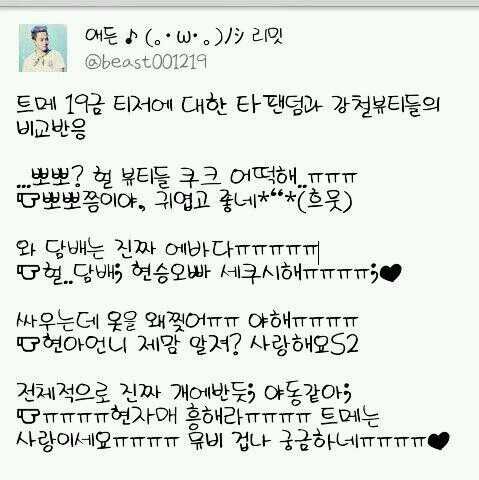 애든♪(｡･ω･｡)ﾉｼ 리밋
@beast001219
트메 19금 티저에 대한 타팬덤과 강철뷰티들의
비교반응
...뽀뽀? 헐 뷰티들 쿠크 어떡해..ㅠㅠㅠ
☞뽀뽀쯤이야, 귀엽고 좋네*““*(흐뭇)
와 담배는 진짜 에바다ㅠㅠㅠㅠㅠ
☞헐..담배; 현승오빠 세쿠시해ㅠㅠㅠㅠ;♥
싸우는데 옷을 왜찢어ㅠㅠ 야해ㅠㅠㅠㅠ
☞현아언니 제맘 알져? 사랑해요S2
전체적으로 진짜 개에반듯; 야동같아;
☞ㅠㅠㅠㅠ현자매 흥해라ㅠㅠㅠㅠ 트메는
사랑이세요ㅠㅠㅠㅠ 뮤비 겁나 궁금하네ㅠㅠㅠㅠ♥